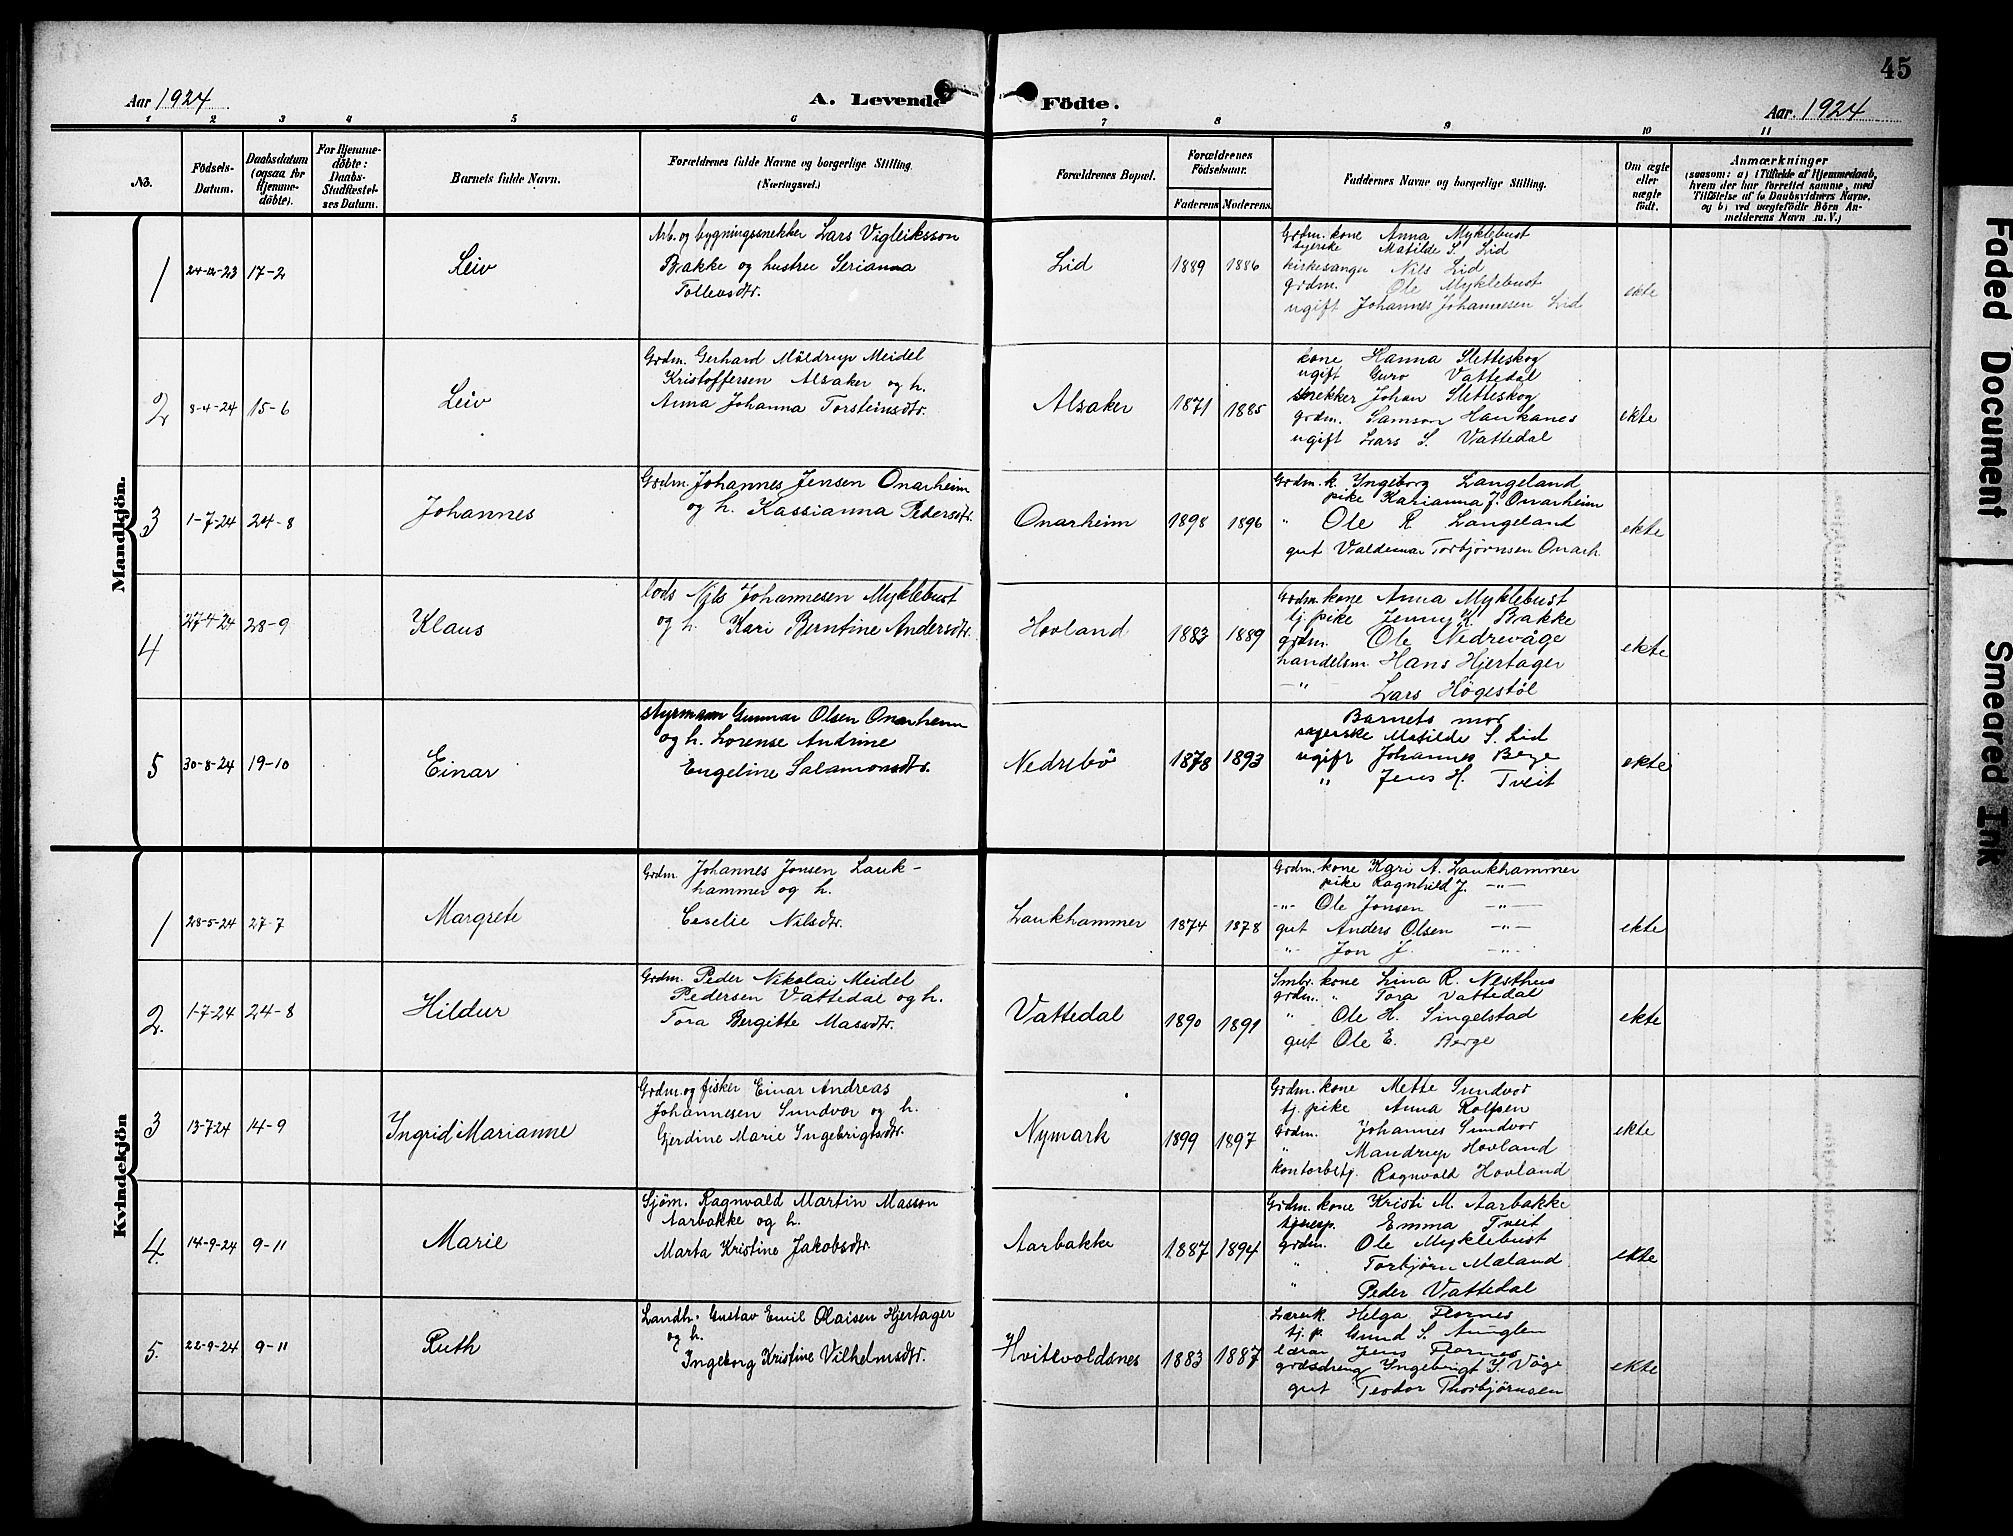 45
Aar 1924
A. Levende Födte.
Aar 1924
1 2 3 4 5 6 7 8 9 10 11
No.
Födsels-
Datum.
Daabsdatum
(ogsaa for
Hjemme-
döbte).
For Hjemme-
döbte:
Daabs-
Stadfæstel-
ses Datum.
Barnets fulde Navn.
Forældrenes fulde Navne og borgerlige Stilling.
(Næringsvei.)
Forældrenes Bopæl.
Forældrenes
Födselsaar.
Faderens Moderens
Faddernes Navne og borgerlige Stilling.
Om ægte
eller
uægte
födt.
Anmærkninger
(saasom: a) i Tilfælde af Hjemmedaab,
hvem der har forrettet samme, med
Tilföielse af to Daabsvidners Navne,
og b) ved uægtefödte Börn An-
melderens Navn m. V.)
Mandkjön.
1
24-12-23
17-2
Leiv
Arb. og bygningssnekker Lars Vigleiksson
Bakke og hustru Serianna
Tollevsdtr.
Lid
1889
1886
Grdm. kone Anna Myklebust
syerske Matilde S. Lid
kirkesanger Nils Lid
grdm. Ole Myklebust
ugift Johannes Johannessen Lid
ekte
2
8-4-24
15-6
Leiv
Grdm. Gerhard Möldrup Meidel
Kristoffersen Alsaker og h.
Anna Johanna Torsteinsdtr.
Alsaker
1871
1885
kone Hanna Sletteskog
ugift Guro Vattedal
snekker Johan Sletteskog
grdm. Samson Haukanes
ugift Lars S. Vattedal
ekte
3
1-7-24
24-8
Johannes
Grdm. Johannes Jensen Onarheim
og h. Kassianna Pedersdtr.
Onarheim
1898
1896
Grdm. k. Yngeborg Langeland
pike Karianna J. Onarheim
" Ole R. Langeland
gut Valdemar Torbjørnsen Onarh.
ekte
4
28-9
Klaus
lods Nils Johannesen Myklebust
og h. Kari Berntine Andersdtr.
Hovland
1883
1889
Grdm. kone Anna Myklebust
tj. pike Jenny K. Bakke
grdm. Ole Nedrevåge
handelsm. Hans Hjertager
-"- Lars Högestöl
ekte
5
30-8-24
19-10
Einar
styrmann Gunnar Olsen Onarheim
og h. Lorense Andrine
Engeline Salamonsdtr.
Nedrebö
1878
1893
Barnets mor
syerske Matilde S. Lid
ugift Johannes Berge
" Jens H. Tveit
ekte
Kvindekjön
1
28-5-24
27-7
Margrete
Grdm Johannes Jonsen Lauk-
hammer og h.
Ceselie Nilsdtr.
Laukhammer
1874
1878
Grdm. kone Kari A. Laukhammer
pike Ragnhild J. -"-
-"- Ole Jonsen -"-
gut Anders Olsen -"-
-"- Jon J. -"-
ekte
2.
1-7-24
24-8
Hildur
Grdm. Peder Nikolai Meidel
Pedersen Vattedal og h.
Tora Bergitte Massdtr.
Vattedal
1890
1891
Smbr. kone Lina R. Nesthus
grdm. " Tora Vattedal
" Ole H. Singelstad
gut Ole E. Berge
ekte
3
13-7-24
14-9
Ingrid Marianne
Grdm. og fisker Einar Andreas
Johannesen Sundvor og h.
Gjerdine Marie Ingebrigtsdtr.
Nymark
1899
1897
Grdm. kone Mette Sundvor
tj. pike Anna Rolfsen
Grdm. Johannes Sundvor
" Mandrup Hovland
kontorbetj. Ragnvald Hovland
ekte
4.
14-9-24
9-11
Marie
Sjöm. Ragnvald Martin Masson
Aarbakke og h.
Marta Kristine Jakobsdtr.
Aarbakke
1887
1894
Grdm. kone Kristi M. Aarbakke
tjenesp. Emma Tveit
grdm. Ole Myklebust
" Torbjørn Mæland
" Peder Vattedal
ekte
5.
22-9-24
9-11
Ruth
Landh. Gustav Emil Olaisen Hjertager
og h.
Ingeborg Kristine Vilhelmsdtr.
Hvitevoldsnes
1883
1887
Lærerk. Helga Flornes
tj. p. Gund S.
lærar Jens Flornes
grdsdreng Yngebrigt S. Våge
gut Teodor Thorbjörnsen
ekte
Faded Document
Smeared Ink